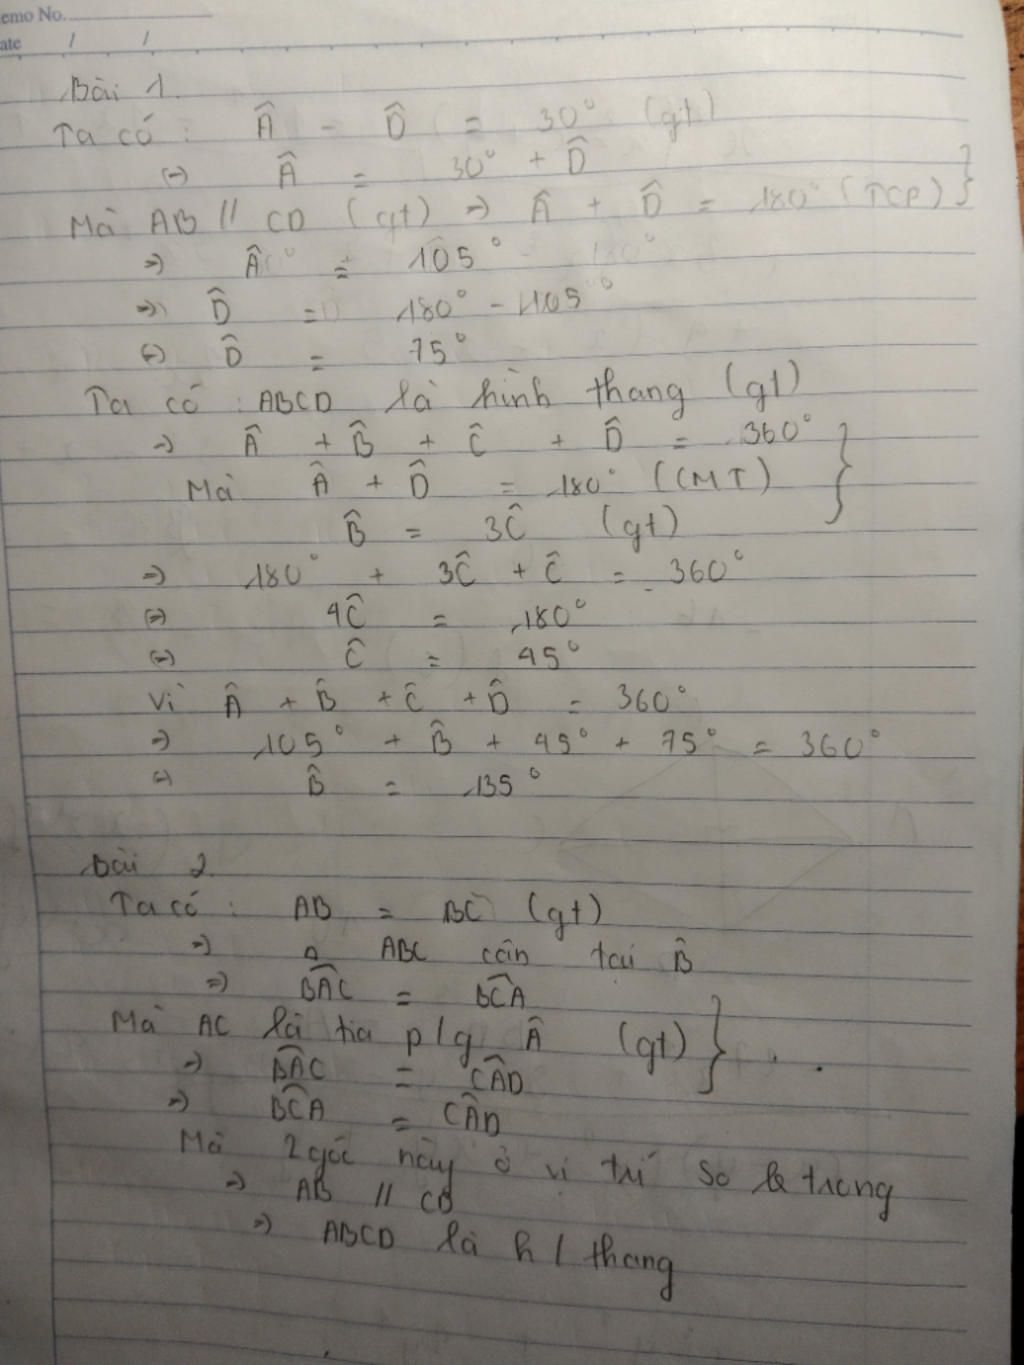 emo No.
ate / /
Bài 1.
Ta có : Â - D̂ = 30° (gt)
(=) Â = 30° + D̂
Mà AB // CD (gt) => Â + D̂ = 180° (TCP) }
=> Â = 105°
=> D̂ = 180° - 105°
(=) D̂ = 75°
Ta có : ABCD là hình thang (gt)
=> Â + B̂ + Ĉ + D̂ = 360°
Mà Â + D̂ = 180° (CMT) }
B̂ = 3Ĉ (gt)
=> 180° + 3Ĉ + Ĉ = 360°
(=) 4Ĉ = 180°
(=) Ĉ = 45°
Vì Â + B̂ + Ĉ + D̂ = 360°
=> 105° + B̂ + 45° + 75° = 360°
(=) B̂ = 135°
Bài 2
Ta có : AB = BC (gt)
=> Δ ABC cân tại B̂
=> BÂC = BĈA
Mà AC là tia p/g Â (gt) }
=> BÂC = CÂD
=> BĈA = CÂD
Mà 2 góc này ở vị trí so le trong
=> AB // CD
=> ABCD là h/thang